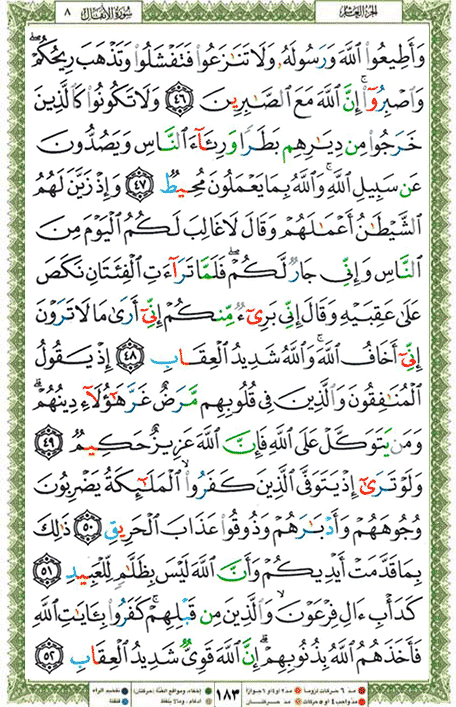 الجزء العاشر
سورة الأنفال ٨
وَأَطِيعُوا۟ ٱللَّهَ وَرَسُولَهُۥ وَلَا تَنَـٰزَعُوا۟ فَتَفْشَلُوا۟ وَتَذْهَبَ رِيحُكُمْ ۖ
وَٱصْبِرُوٓا۟ ۚ إِنَّ ٱللَّهَ مَعَ ٱلصَّـٰبِرِينَ ٤٦ وَلَا تَكُونُوا۟ كَٱلَّذِينَ
خَرَجُوا۟ مِن دِيَـٰرِهِم بَطَرًا وَرِئَآءَ ٱلنَّاسِ وَيَصُدُّونَ
عَن سَبِيلِ ٱللَّهِ ۚ وَٱللَّهُ بِمَا يَعْمَلُونَ مُحِيطٌ ٤٧ وَإِذْ زَيَّنَ لَهُمُ
ٱلشَّيْطَـٰنُ أَعْمَـٰلَهُمْ وَقَالَ لَا غَالِبَ لَكُمُ ٱلْيَوْمَ مِنَ
ٱلنَّاسِ وَإِنِّى جَارٌ لَّكُمْ ۖ فَلَمَّا تَرَآءَتِ ٱلْفِئَتَانِ نَكَصَ
عَلَىٰ عَقِبَيْهِ وَقَالَ إِنِّى بَرِىٓءٌ مِّنكُمْ إِنِّىٓ أَرَىٰ مَا لَا تَرَوْنَ
إِنِّىٓ أَخَافُ ٱللَّهَ ۚ وَٱللَّهُ شَدِيدُ ٱلْعِقَابِ ٤٨ إِذْ يَقُولُ
ٱلْمُنَـٰفِقُونَ وَٱلَّذِينَ فِى قُلُوبِهِم مَّرَضٌ غَرَّ هَـٰٓؤُلَآءِ دِينُهُمْ ۗ
وَمَن يَتَوَكَّلْ عَلَى ٱللَّهِ فَإِنَّ ٱللَّهَ عَزِيزٌ حَكِيمٌ ٤٩
وَلَوْ تَرَىٰٓ إِذْ يَتَوَفَّى ٱلَّذِينَ كَفَرُوا۟ ۙ ٱلْمَلَـٰٓئِكَةُ يَضْرِبُونَ
وُجُوهَهُمْ وَأَدْبَـٰرَهُمْ وَذُوقُوا۟ عَذَابَ ٱلْحَرِيقِ ٥٠ ذَٰلِكَ
بِمَا قَدَّمَتْ أَيْدِيكُمْ وَأَنَّ ٱللَّهَ لَيْسَ بِظَلَّـٰمٍ لِّلْعَبِيدِ ٥١
كَدَأْبِ ءَالِ فِرْعَوْنَ ۙ وَٱلَّذِينَ مِن قَبْلِهِمْ ۚ كَفَرُوا۟ بِـَٔايَـٰتِ ٱللَّهِ
فَأَخَذَهُمُ ٱللَّهُ بِذُنُوبِهِمْ ۗ إِنَّ ٱللَّهَ قَوِىٌّ شَدِيدُ ٱلْعِقَابِ ٥٢
١٨٣